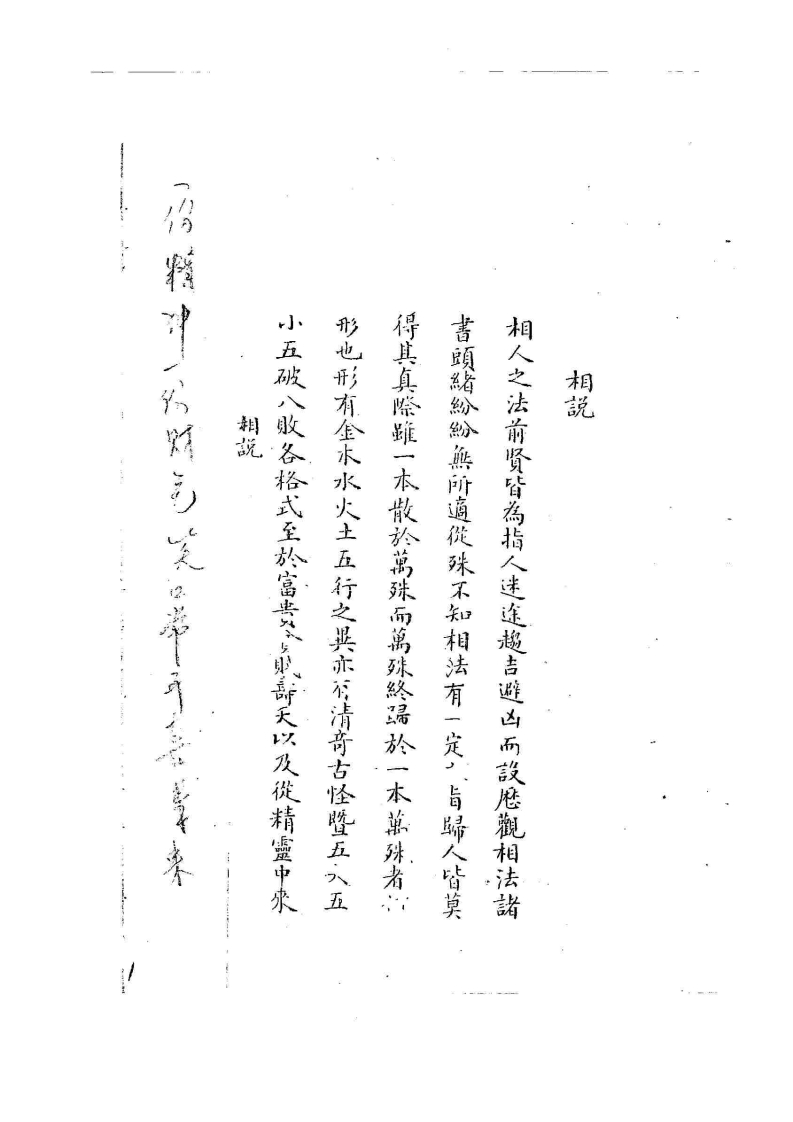 相説
相人之法前賢皆為指人迷途趨吉避凶而設歷觀相法諸
書頭緒紛紛無所適從殊不知相法有一定旨歸人皆莫
得其真際雖一本散於萬殊而萬殊終歸於一本萬殊者
形也形有金木水火土五行之異亦有清奇古怪暨五大五
小五破八敗各格式至於富貴貧賤壽夭以及從精靈中來
相説
一份精神一份財
來
1